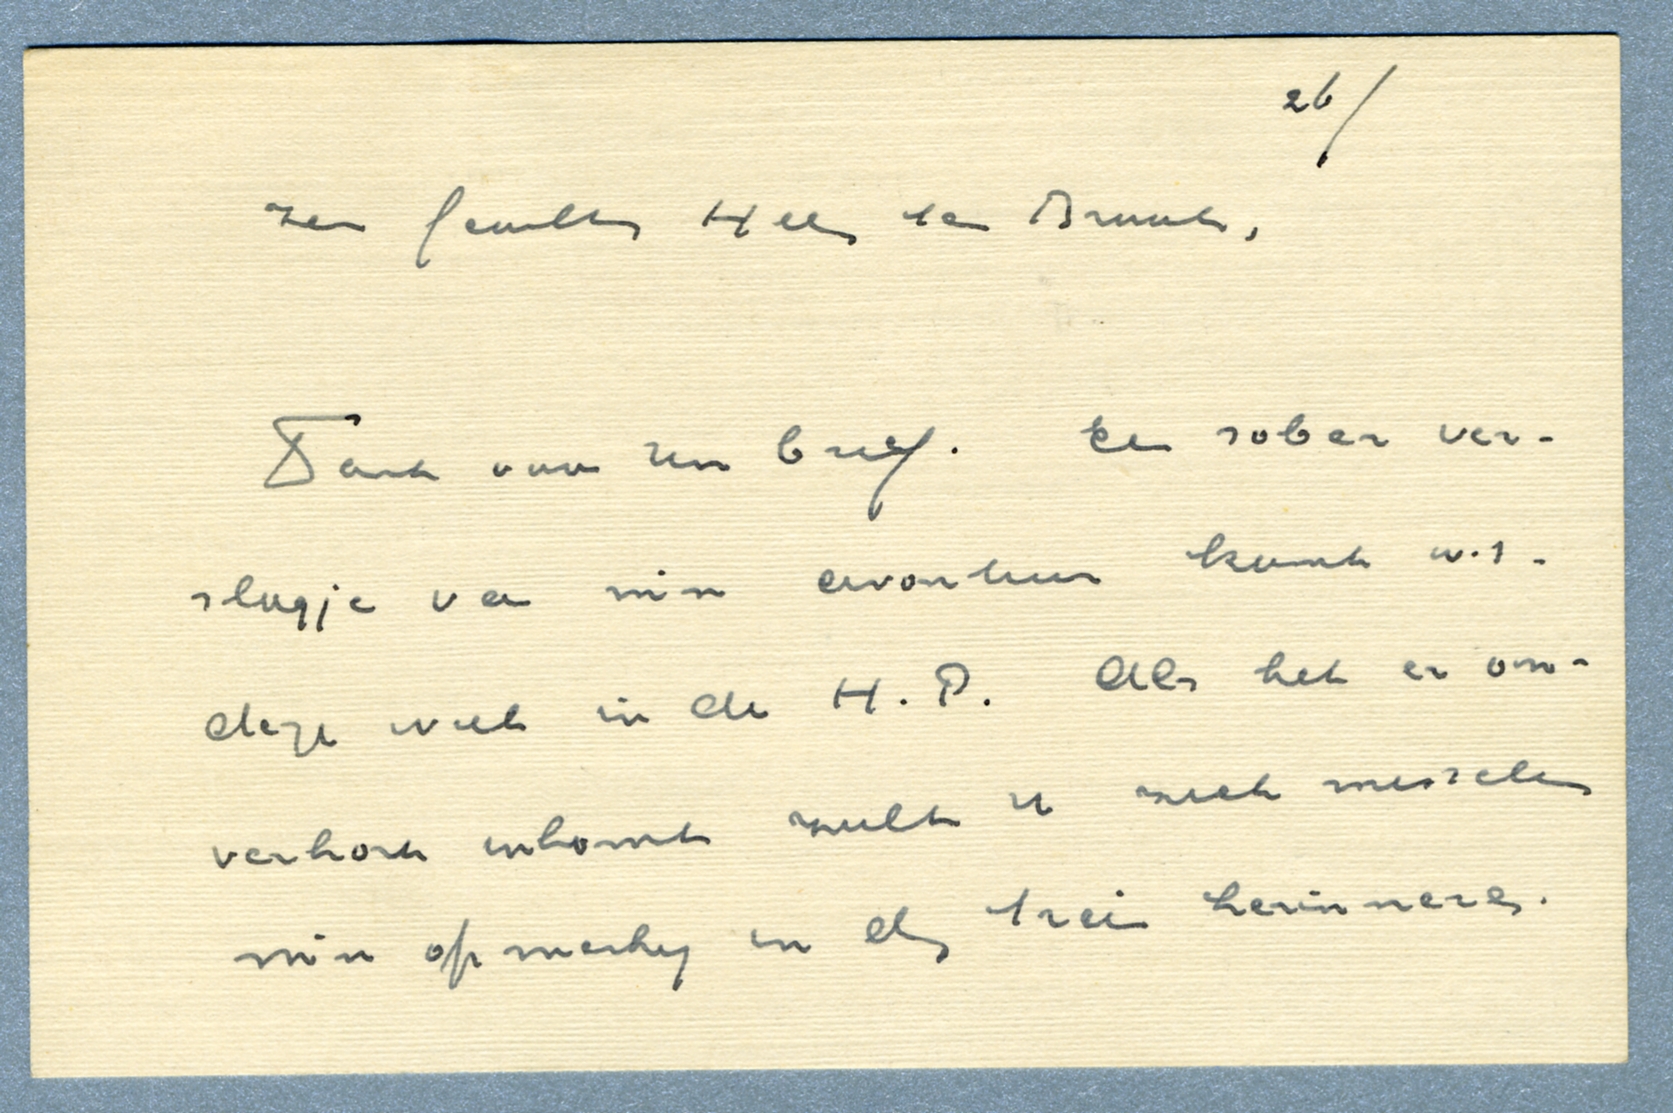 26/
Zeer geachte Heer ter Braak,
Dank voor Uw brief. Een sober ver-
slagje van mijn avontuur komt w.s.
deze week in de H.P. Als het er on-
verkort inkomt zult U zich misschien
mijn opmerking in de trein herinneren.